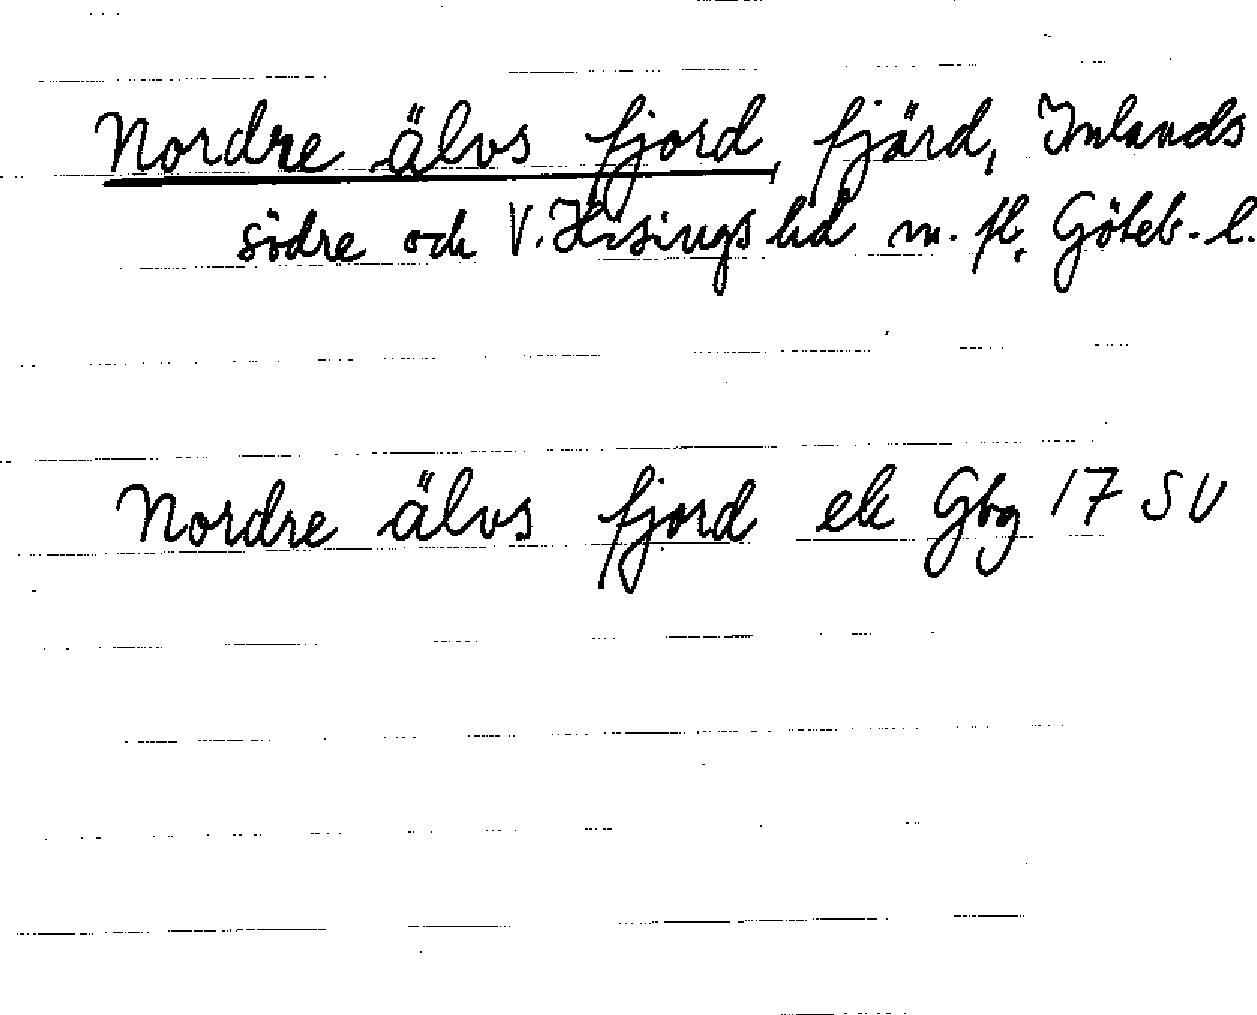 Nordre älvs fjord, fjärd, Inlands
södre och V. Hisings hd m. fl. Göteb. l.
Nordre älvs fjord ek Gbg 17 SV